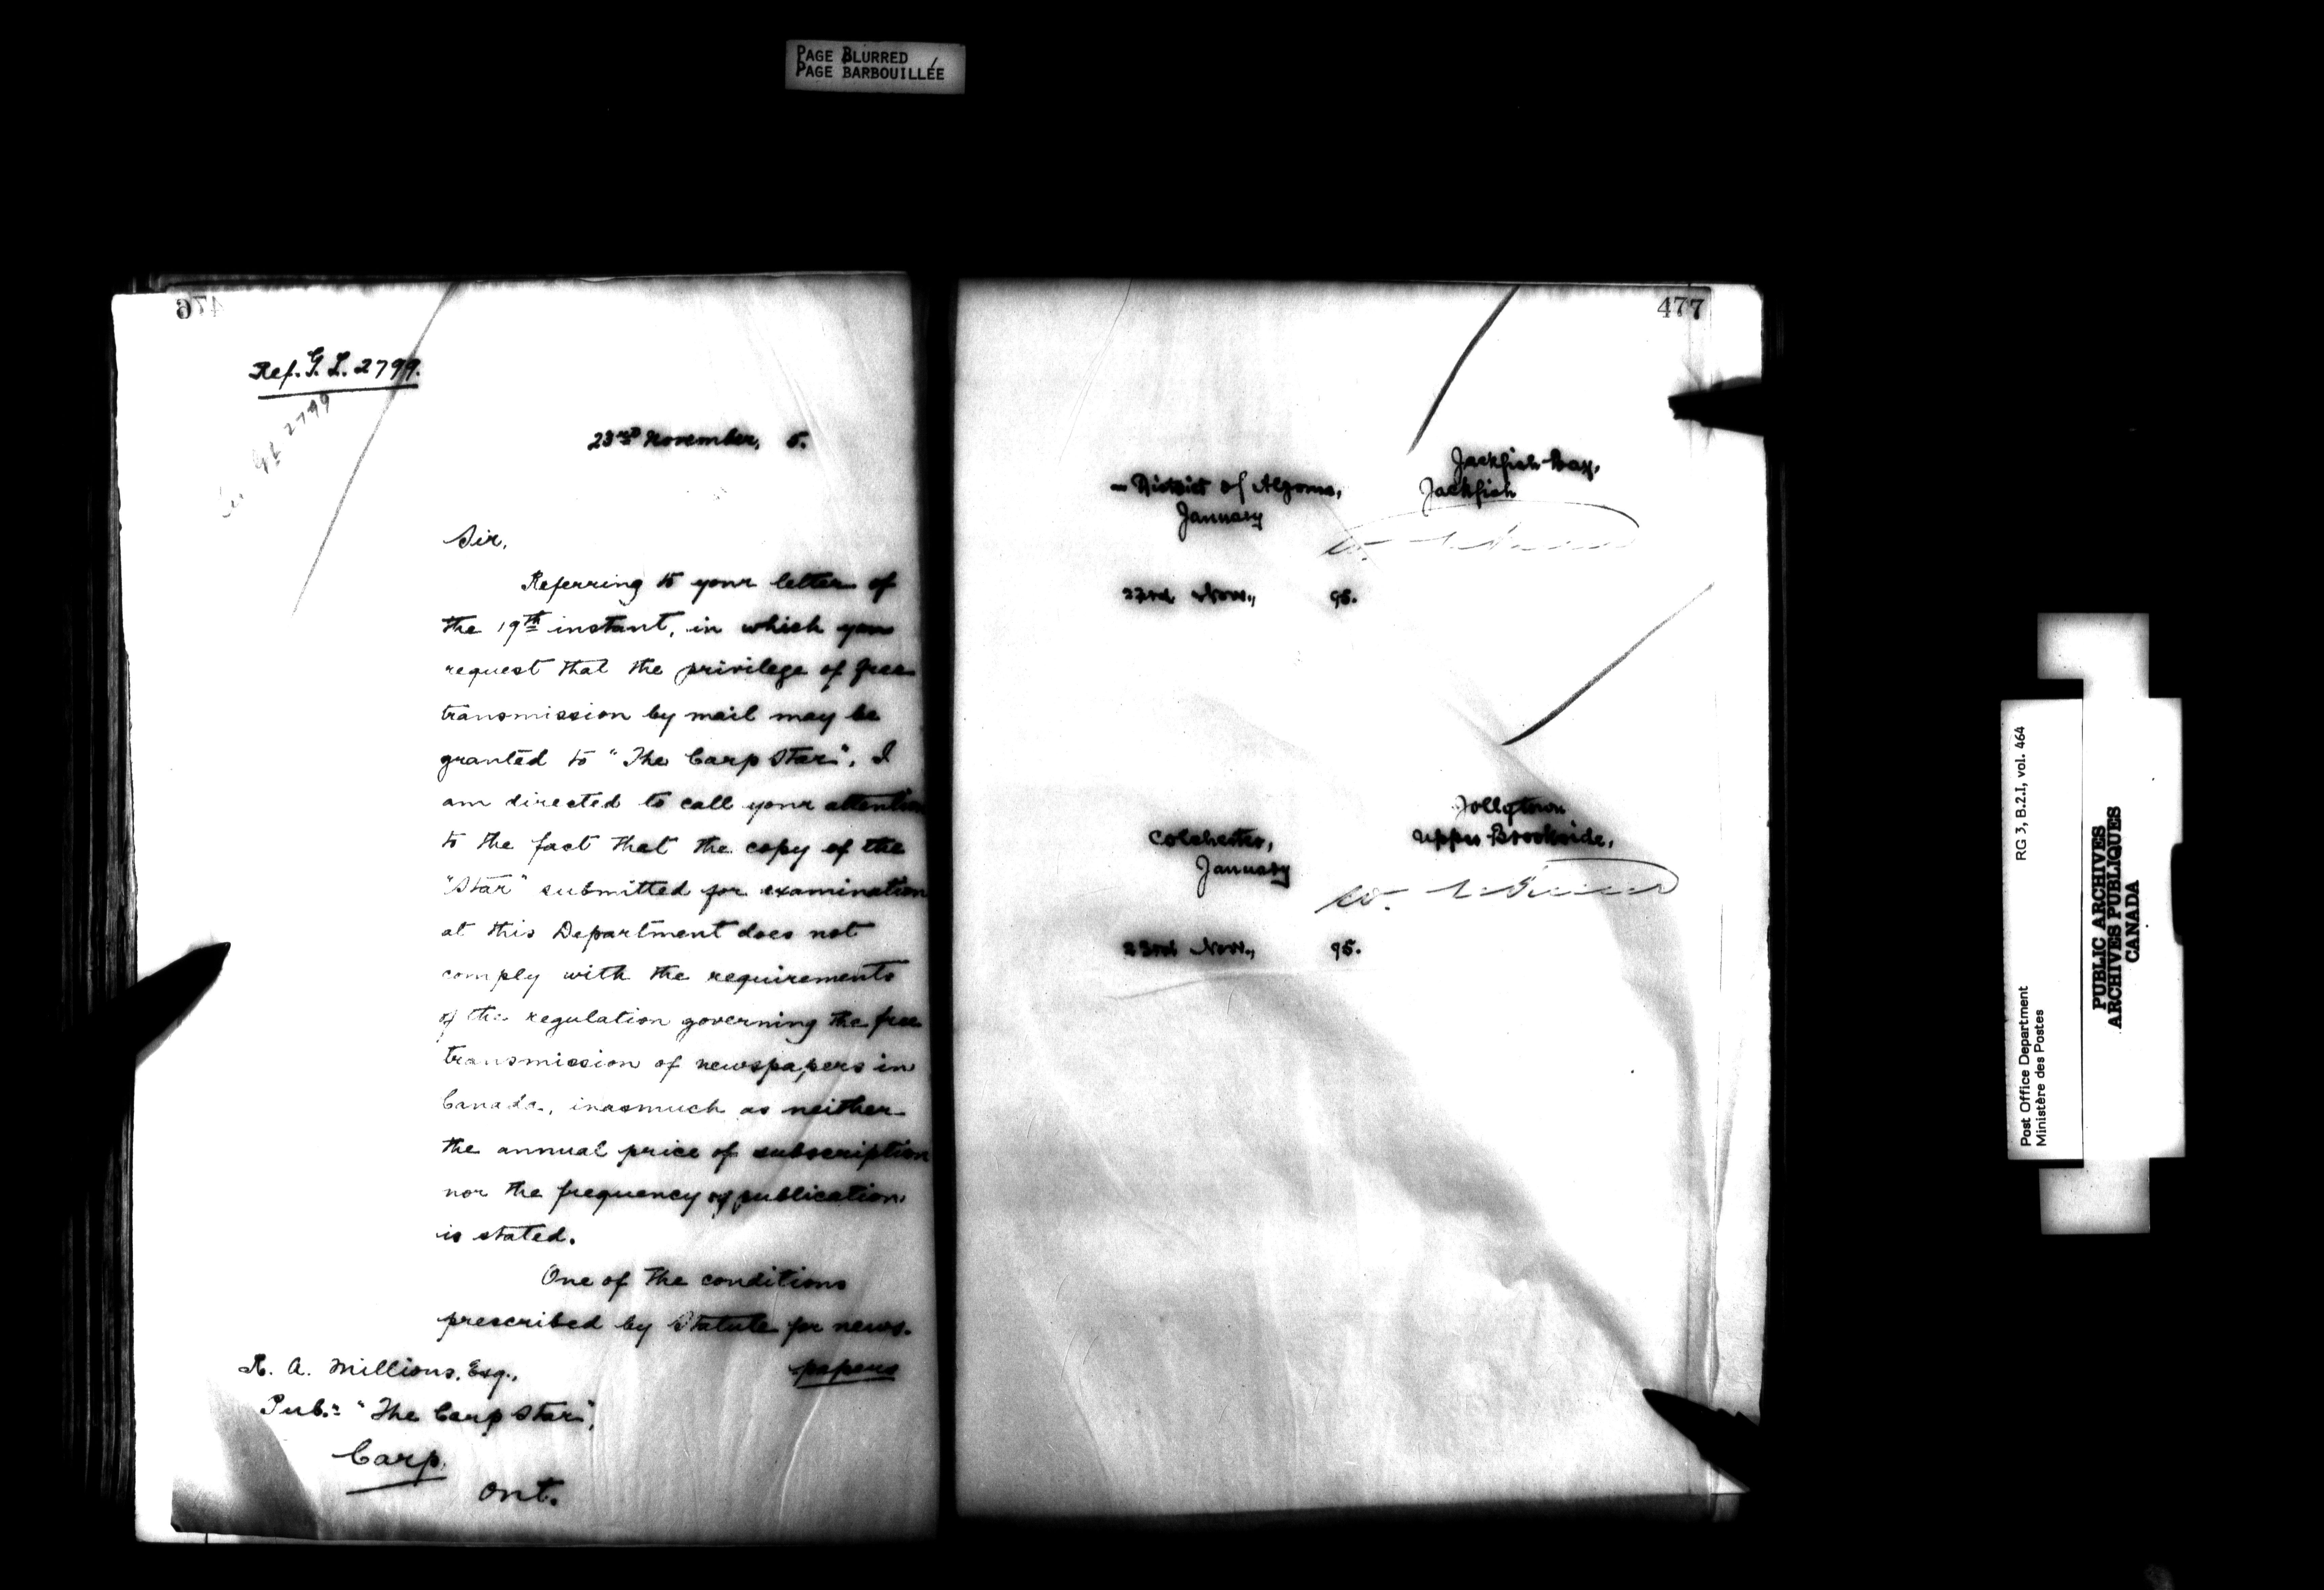 PAGE BLURRED
PAGE BARBOUILLÉE
476
Ref. G. L. 2799.
GL 2799
23rd November, 5.
Sir,
Referring to your letter of
the 19th instant, in which you
request that the privilege of free
transmission by mail may be
granted to "The Carp Star", I
am directed to call your attention
to the fact that the copy of the
"Star" submitted for examination
at this Department does not
comply with the requirements
of the regulation governing the free
transmission of newspapers in
Canada, inasmuch as neither
the annual price of subscription
nor the frequency of publication
is stated.
One of the conditions
prescribed by Statute for news-
papers
R. A. Millions, Esq.,
Pubr. "The Carp Star",
Carp.
Ont.
477
Jackfish Bay,
District of Algoma,
Jackfish
January
W.
23rd Nov., 95.
Jollytown
Colchester,
Upper Brookside,
January
W.
23rd Nov., 95.
Post Office Department
Ministère des Postes
RG 3, B.2.I, vol. 464
PUBLIC ARCHIVES
ARCHIVES PUBLIQUES
CANADA